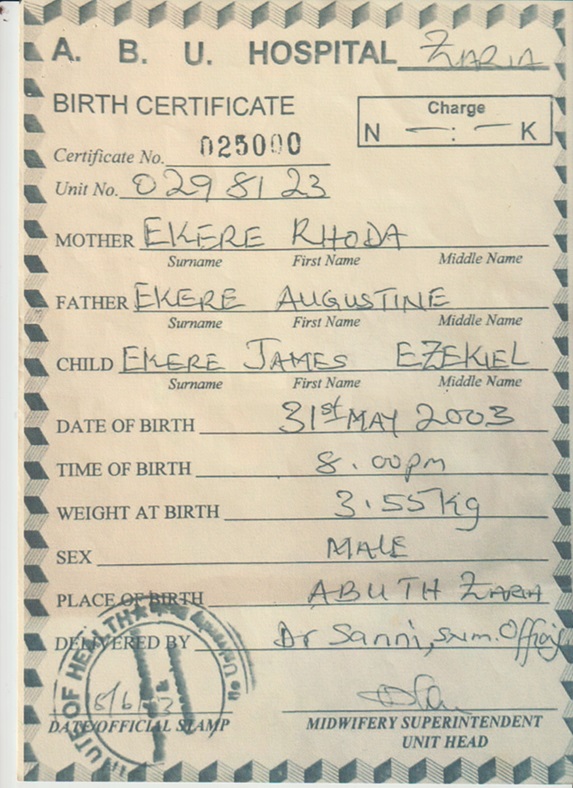 A. B. U. HOSPITAL ZARIA
BIRTH CERTIFICATE
Charge
N —:— K
Certificate No. 025000
Unit No. 0298123
MOTHER EKERE RHODA
Surname First Name Middle Name
FATHER EKERE AUGUSTINE
Surname First Name Middle Name
CHILD EKERE JAMES EZEKIEL
Surname First Name Middle Name
DATE OF BIRTH 31st MAY 2003
TIME OF BIRTH 8.00pm
WEIGHT AT BIRTH 3.55kg
SEX MALE
PLACE OF BIRTH ABUTH ZARIA
DELIVERED BY Dr Sanni,
DATE/OFFICIAL STAMP
MIDWIFERY SUPERINTENDENT
UNIT HEAD